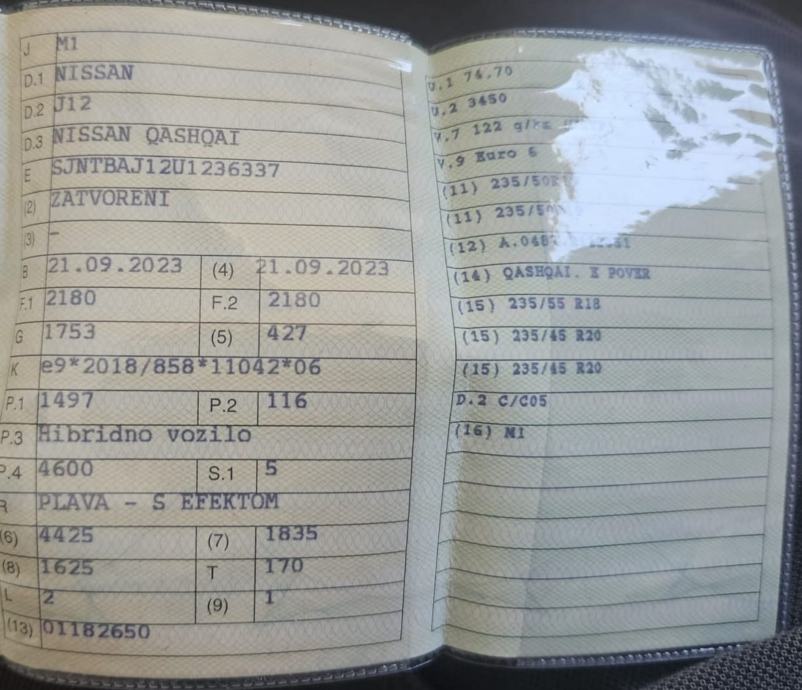 J M1
D.1 NISSAN
D.2 J12
D.3 NISSAN QASHQAI
E SJNTBAJ12U1236337
(2) ZATVORENI
(3) –
B 21.09.2023 (4) 21.09.2023
F.1 2180 F.2 2180
G 1753 (5) 427
K e9*2018/858*11042*06
P.1 1497 P.2 116
P.3 Hibridno vozilo
P.4 4600 S.1 5
R PLAVA - S EFEKTOM
(6) 4425 (7) 1835
(8) 1625 T 170
L 2 (9) 1
(13) 01182650
U.1 74.70
U.2 3450
V.7 122 g/km
V.9 Euro 6
(11) 235/50R
(11) 235/50
(12)
(14) QASHQAI. E POVER
(15) 235/55 R18
(15) 235/45 R20
(15) 235/45 R20
D.2 C/C05
(16) MI